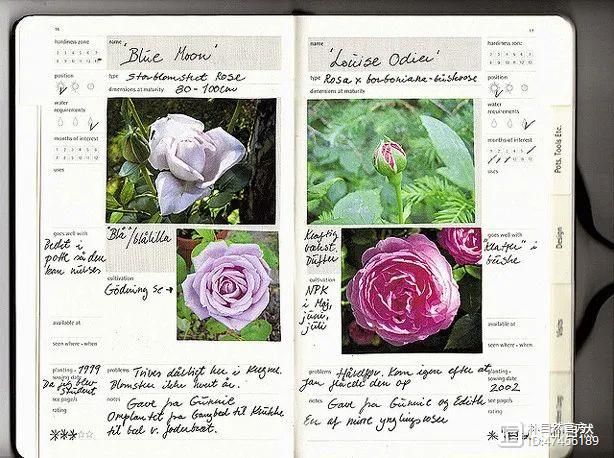 16
hardiness zone
name
'Blue Moon'
1 2 3 4 5 6
7 8 9 10 11
type
Storblomstret Rose
position
dimensions at maturity
80-100cm
water
requirements
months of interest
1 2 3 4 5 6
7 8 9 10 11 12
uses
goes well with
"Blå"/blålilla
kan
cultivation
Gødning se →
available at
seen where - when
planting -
sowing date
1999
Da jeg blev
student
problems
Trives dårligt her i
Blomster ikke hvert år.
see page/s
notes
Gave fra Gunnie
rating
Omplantet fra
17
name
'Louise Odier'
hardiness zone
type
Rosa x borboniana-buskrose
dimensions at maturity
position
water
requirements
months of interest
uses
Pots, Tools Etc.
Kraftig
Dufter
goes well with
"Klatter" i
buske
cultivation
NPK
i Maj,
juni,
juli
Design
available at
seen where - when
Visits
problems
Hårdfør. Kom igen efter at
jeg havde den op
planting -
sowing date
2002
notes
Gave fra Gunnie og Edith
see page/s
En af mine yndlingsroser
rating
ID:47466189